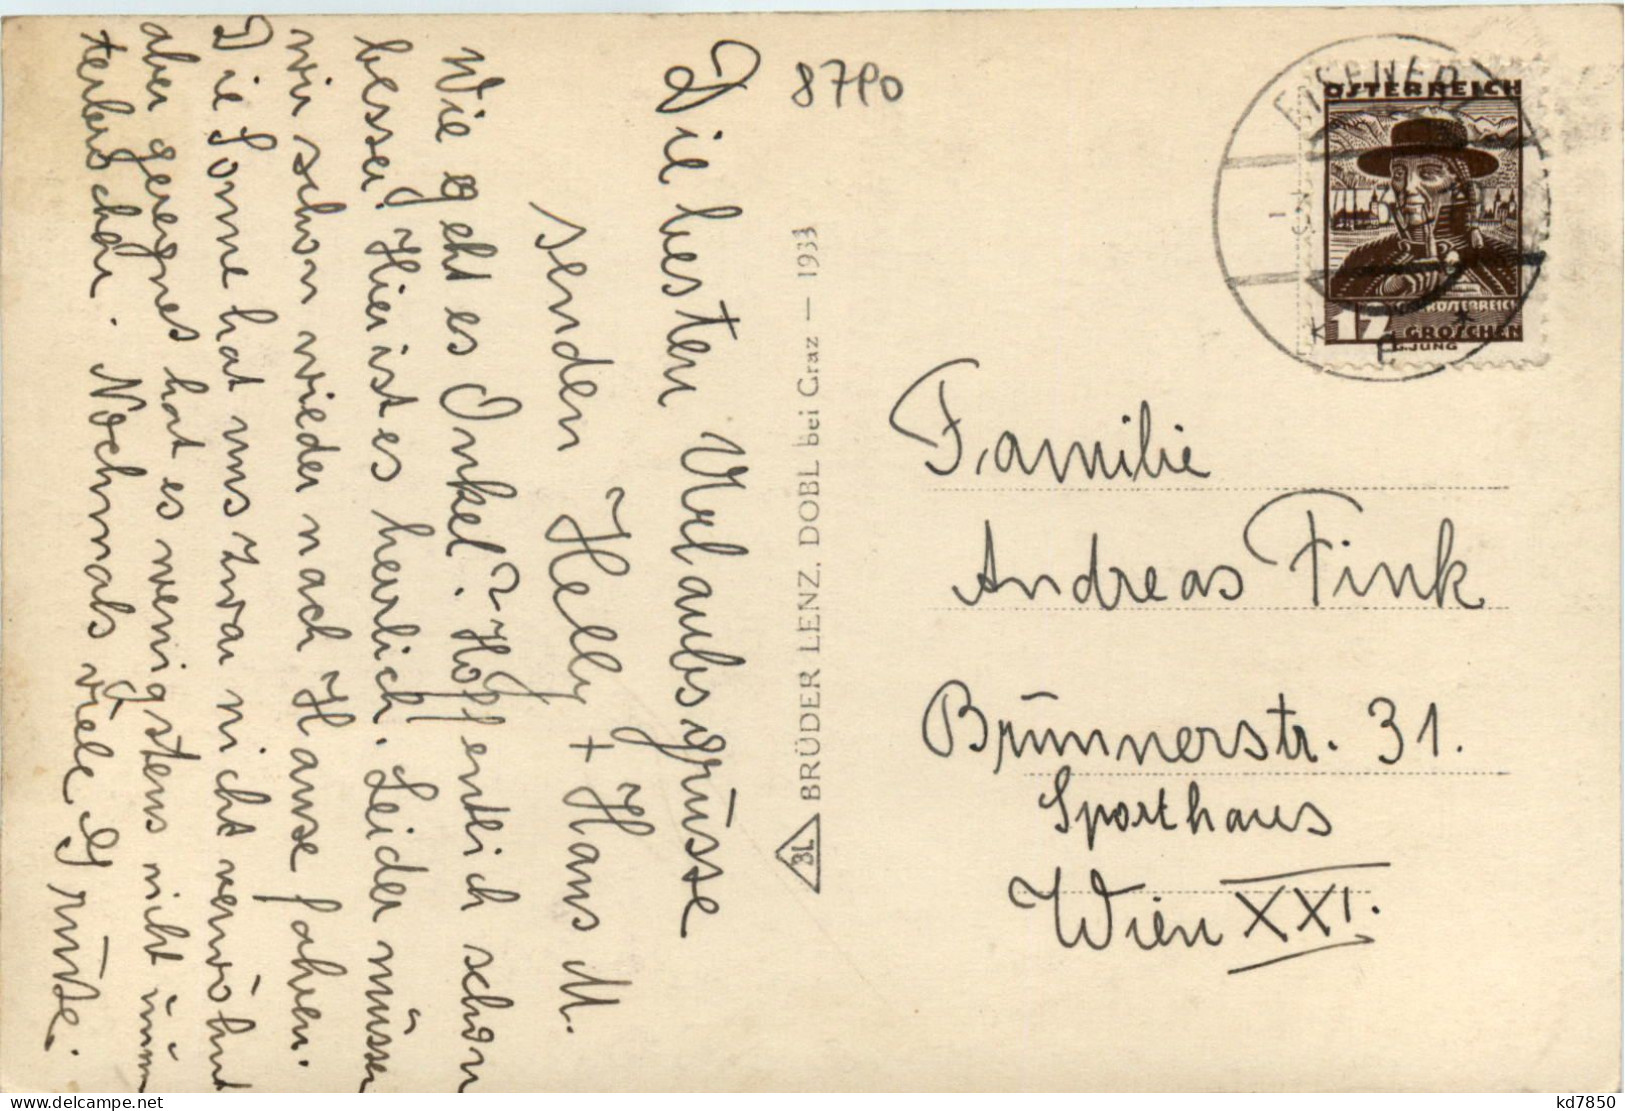 8790
Die besten Urlaubsgrüsse
senden Helly + Hans M.
Wie geht es Onkel? Hoffentlich schon
besser! Hier ist es herrlich. Leider müssen
wir schon wieder nach Hause fahren.
Die Sonne hat uns zwar nicht verwöhnt
aber geregnet hat es wenigstens nicht
Nochmals viele Grüsse.
BRÜDER LENZ, DOBL bei Graz — 1933
BL
ÖSTERREICH
GROSCHEN
G.JUNG
Familie
Andreas Fink
Brünnerstr. 31.
Sporthaus
Wien XXI.
kd7850